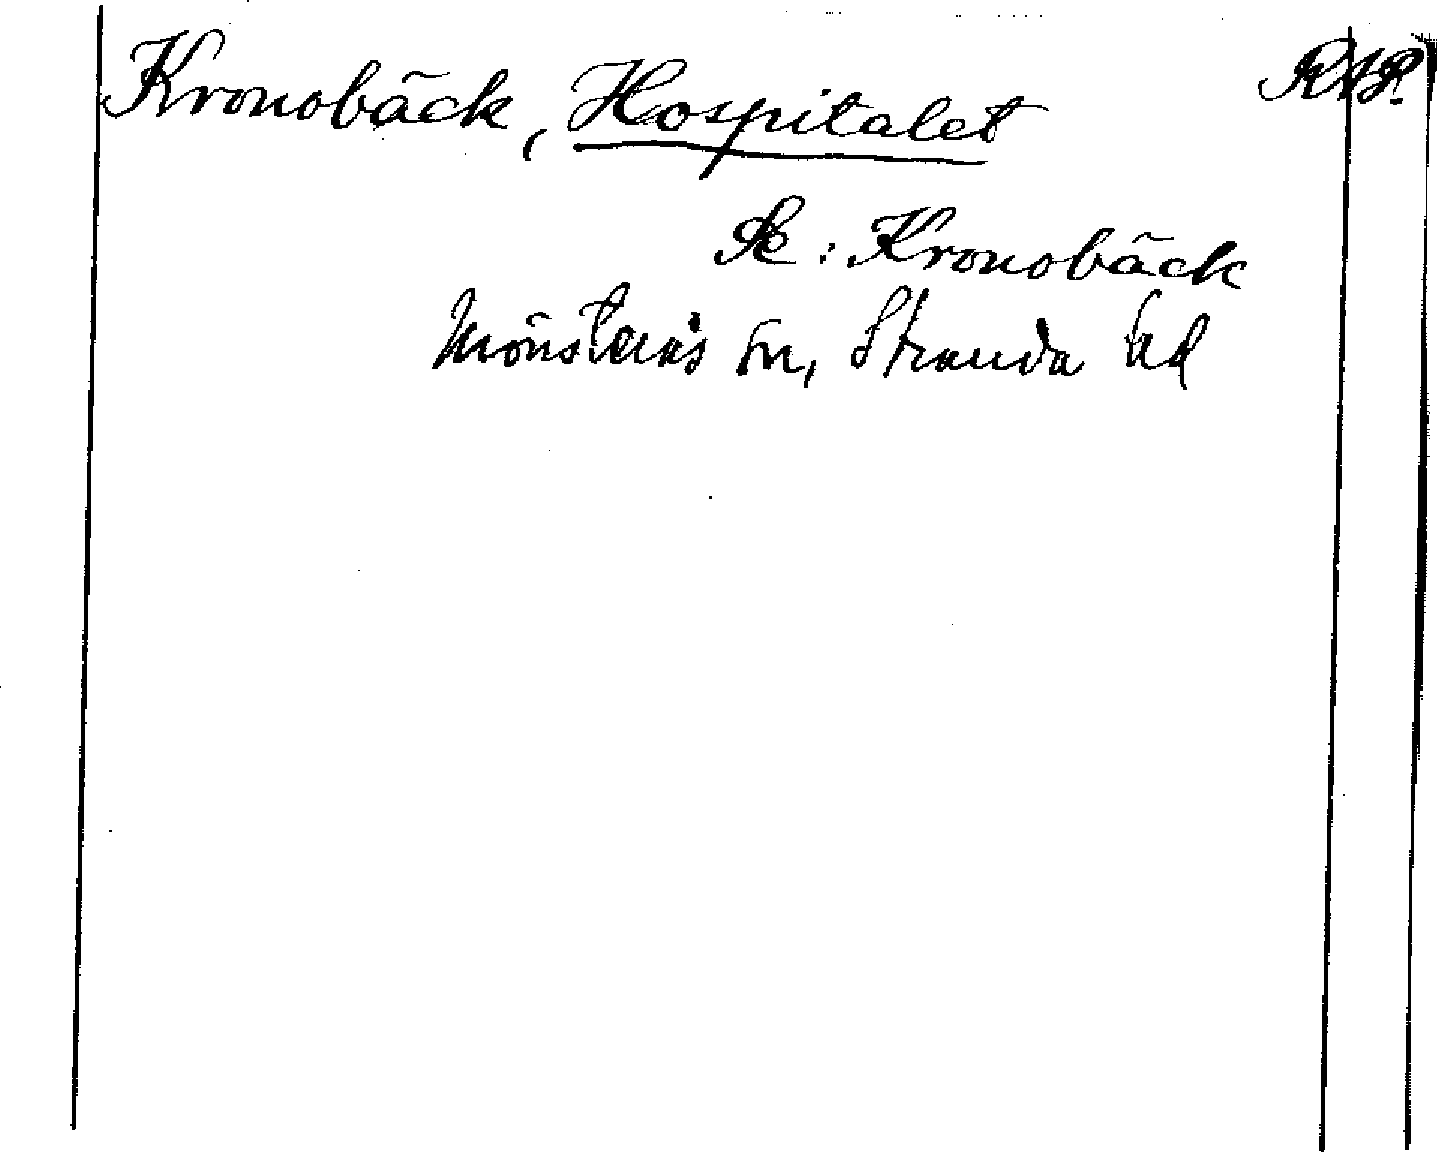 Kronobäck, Hospitalet
Se: Kronobäck
Mönsterås sn, Stranda hd